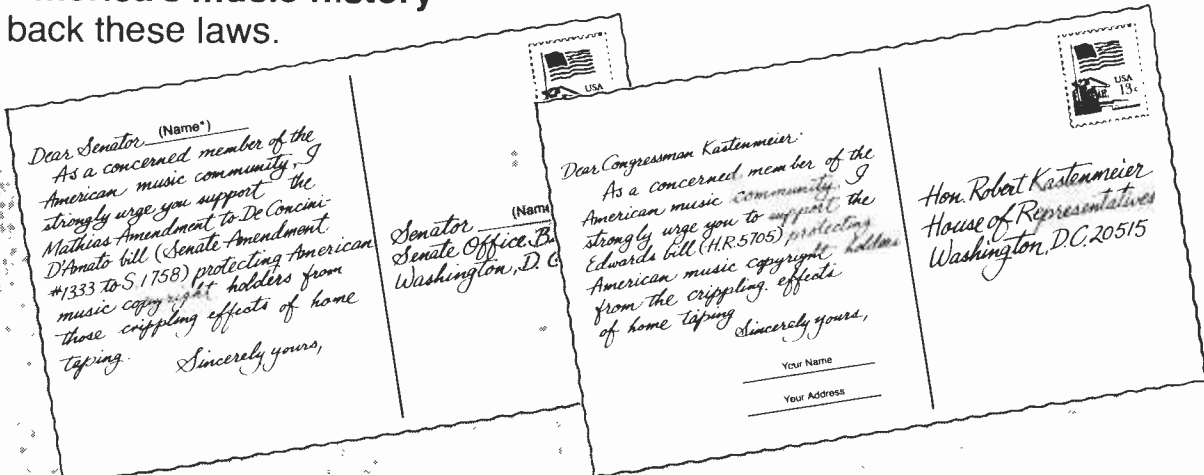 America's music history
back these laws.
USA
Dear Senator (Name*)
As a concerned member of the
American music community, I
strongly urge you support the
Mathias Amendment to De Concini-
D'Amato bill (Senate Amendment
#1333 to S.1758) protecting American
music copyright holders from
those crippling effects of home
taping.
Sincerely yours,
Senator (Nam
Senate Office B
Washington, D. C
USA
13c
Dear Congressman Kastenmeier:
As a concerned member of the
American music community, I
strongly urge you to support the
Edwards bill (H.R.5705) protecting
American music copyright holders
from the crippling effects
of home taping
Sincerely yours,
Your Name
Your Address
Hon. Robert Kastenmeier
House of Representatives
Washington, D.C. 20515